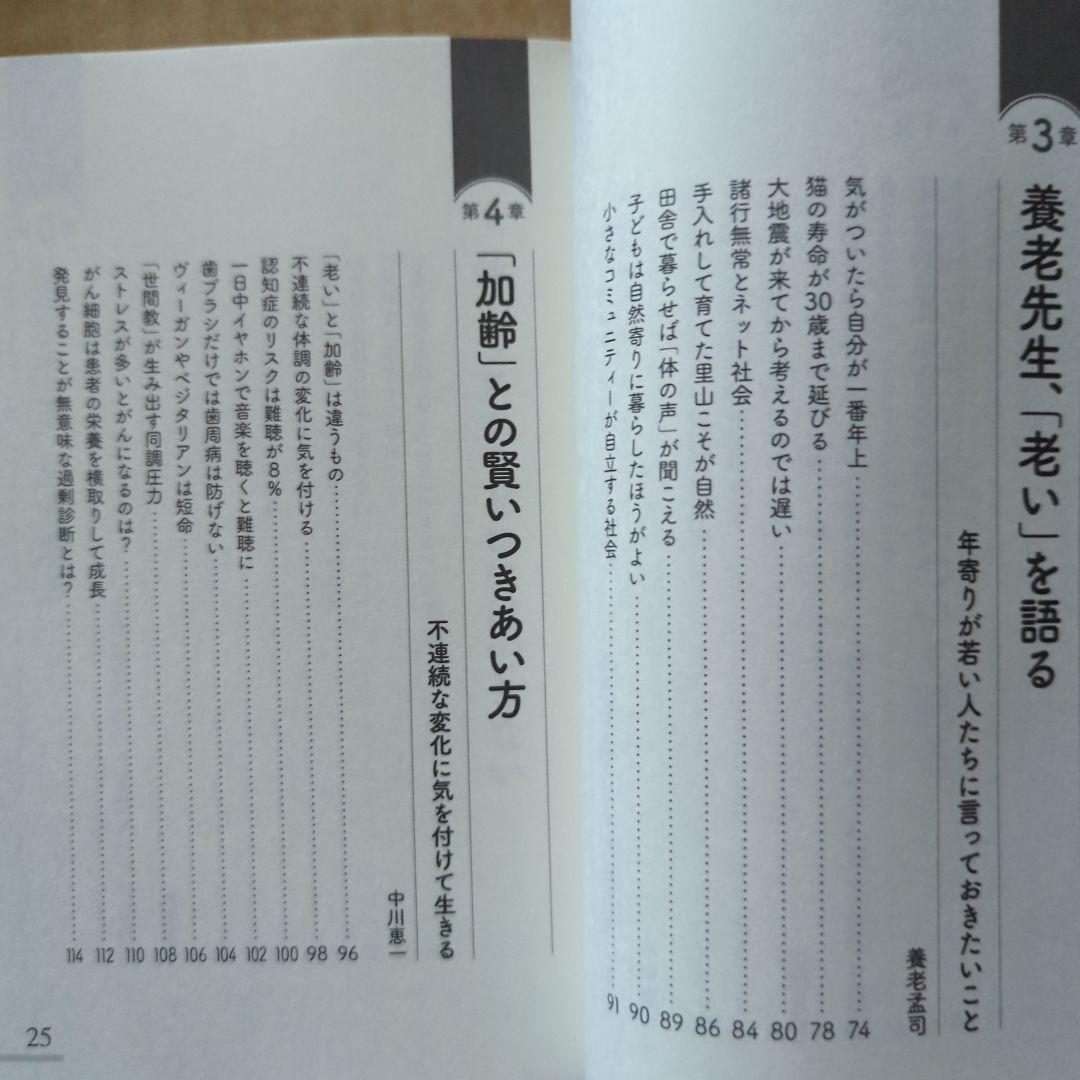 第3章
養老先生、「老い」を語る
年寄りが若い人たちに言っておきたいこと
養老孟司
気がついたら自分が一番年上 74
猫の寿命が30歳まで延びる 78
大地震が来てから考えるのでは遅い 80
諸行無常とネット社会 84
手入れして育てた里山こそが自然 86
田舎で暮らせば「体の声」が聞こえる 89
子どもは自然寄りに暮らしたほうがよい 90
小さなコミュニティーが自立する社会 91
第4章
「加齢」との賢いつきあい方
不連続な変化に気を付けて生きる
中川恵一
「老い」と「加齢」は違うもの 96
不連続な体調の変化に気を付ける 98
認知症のリスクは難聴が8% 100
一日中イヤホンで音楽を聴くと難聴に 102
歯ブラシだけでは歯周病は防げない 104
ヴィーガンやベジタリアンは短命 106
「世間教」が生み出す同調圧力 108
ストレスが多いとがんになるのは? 110
がん細胞は患者の栄養を横取りして成長 112
発見することが無意味な過剰診断とは? 114
25